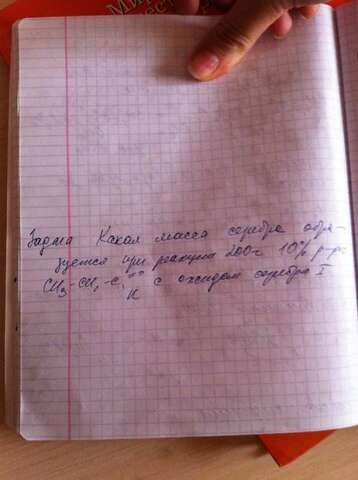 МИР
Задача Какая масса серебра обра-
зуется при реакции 200г 10% р-ра
CH3-CH2-C=O H с оксидом серебра I